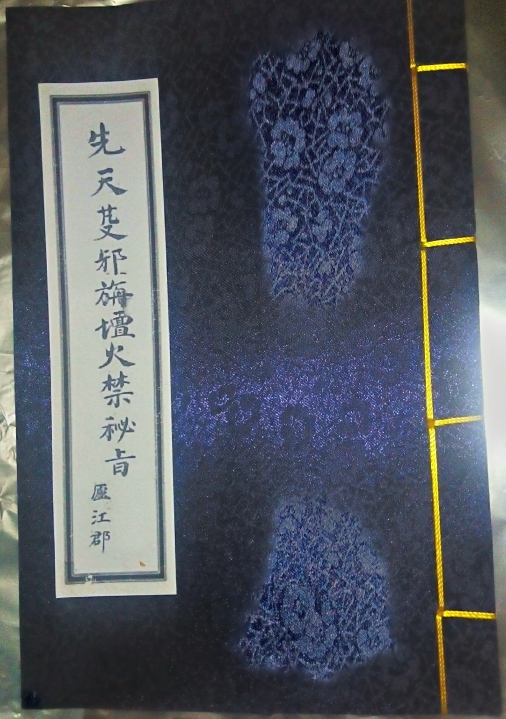 先天芟邪旃壇火禁秘旨
廬江郡